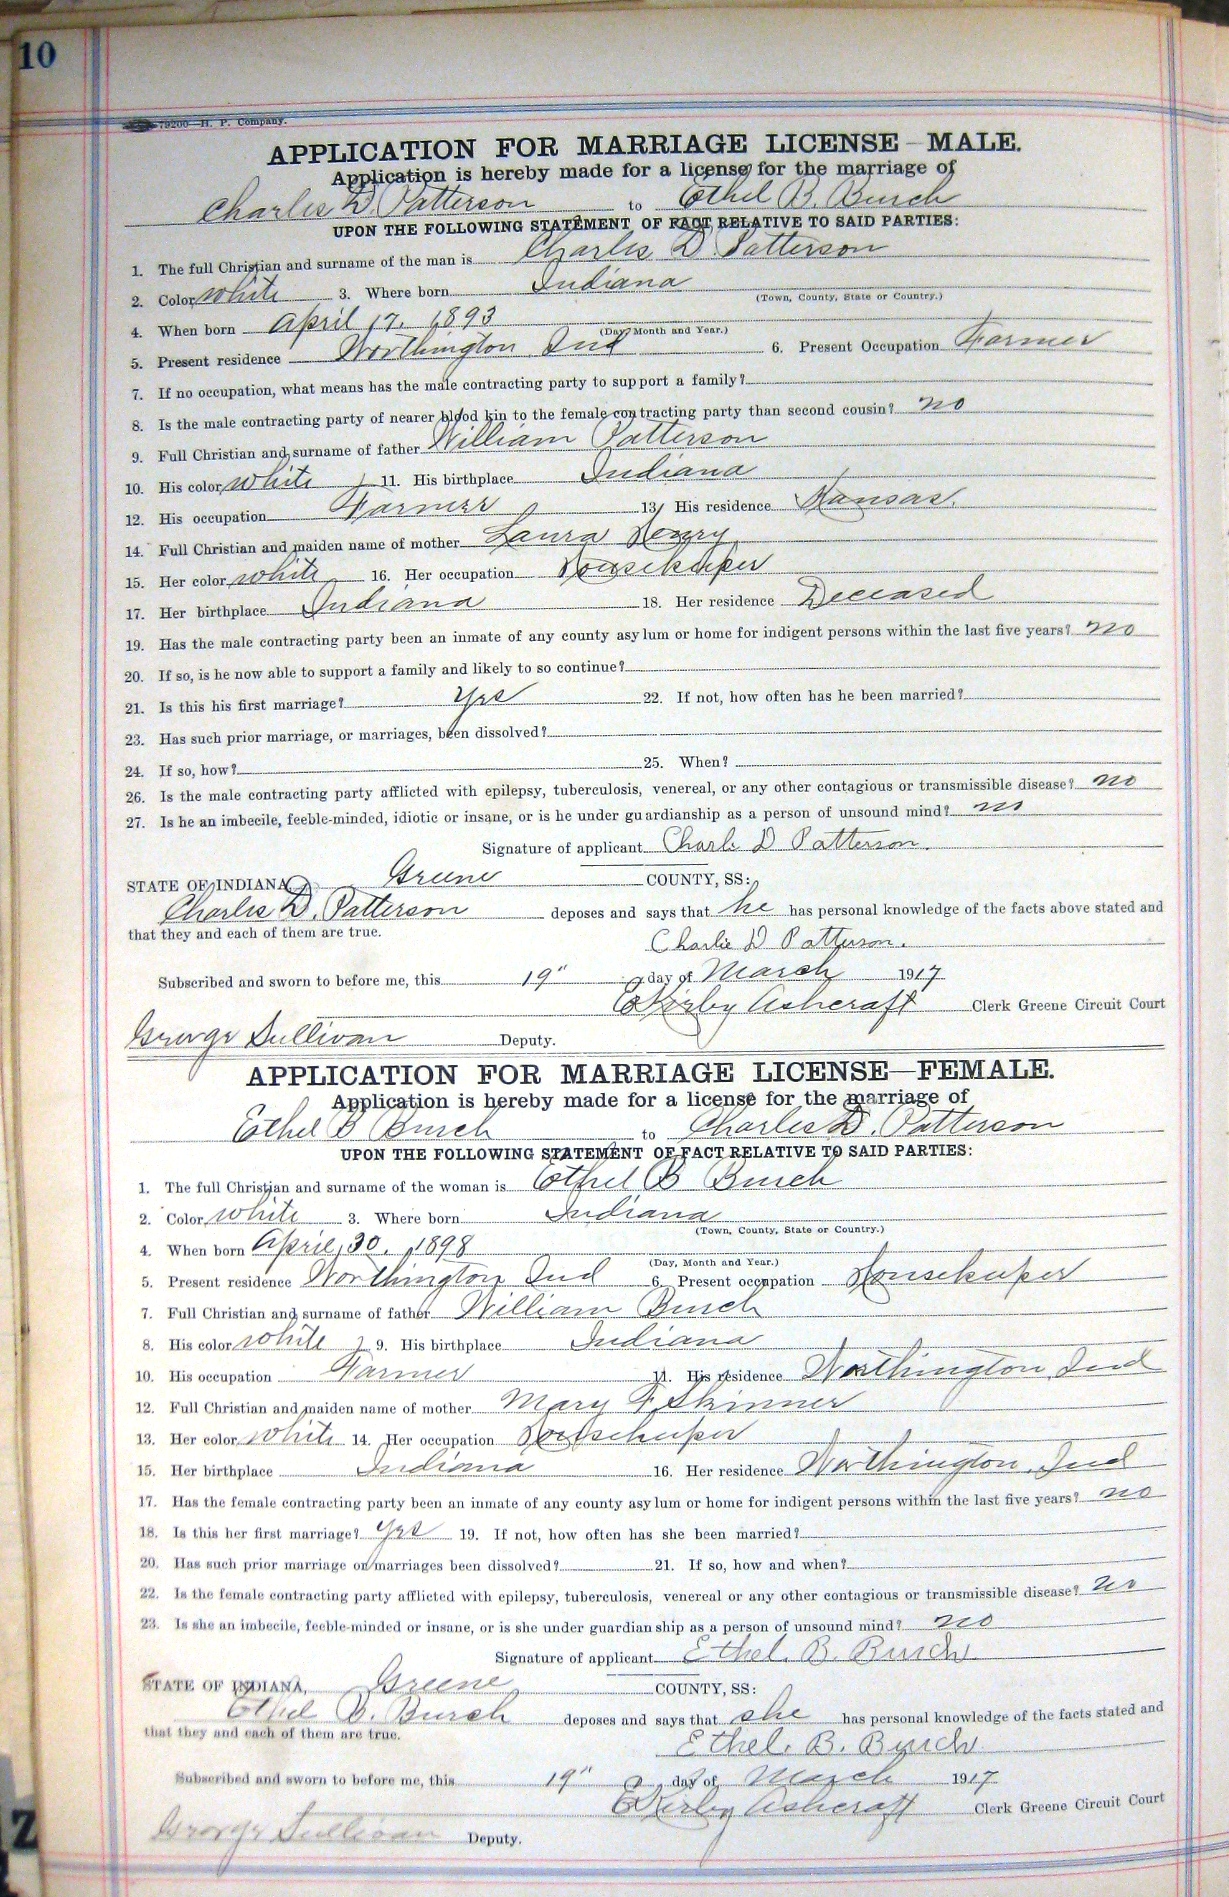 10
79200—H. P. Company.
APPLICATION FOR MARRIAGE LICENSE—MALE.
Application is hereby made for a license for the marriage of
Charles D. Patterson to Ethel B. Burch
UPON THE FOLLOWING STATEMENT OF FACT RELATIVE TO SAID PARTIES:
1. The full Christian and surname of the man is Charles D. Patterson
2. Color white 3. Where born Indiana
(Town, County, State or Country.)
4. When born April 17, 1893
(Day Month and Year.)
5. Present residence Worthington Ind 6. Present Occupation Farmer
7. If no occupation, what means has the male contracting party to support a family?
8. Is the male contracting party of nearer blood kin to the female contracting party than second cousin? no
9. Full Christian and surname of father William Patterson
10. His color white 11. His birthplace Indiana
12. His occupation Farmer 13. His residence Kansas.
14. Full Christian and maiden name of mother Laura Henry
15. Her color white 16. Her occupation Housekeeper
17. Her birthplace Indiana 18. Her residence Deceased
19. Has the male contracting party been an inmate of any county asylum or home for indigent persons within the last five years? no
20. If so, is he now able to support a family and likely to so continue?
21. Is this his first marriage? yes 22. If not, how often has he been married?
23. Has such prior marriage, or marriages, been dissolved?
24. If so, how? 25. When?
26. Is the male contracting party afflicted with epilepsy, tuberculosis, venereal, or any other contagious or transmissible disease? no
27. Is he an imbecile, feeble-minded, idiotic or insane, or is he under guardianship as a person of unsound mind? no
Signature of applicant Charli D Patterson.
STATE OF INDIANA, Greene COUNTY, SS:
Charles D. Patterson deposes and says that he has personal knowledge of the facts above stated and
that they and each of them are true.
Charlie D Patterson.
Subscribed and sworn to before me, this 19" day of March 1917
E Kirby Ashcraft Clerk Greene Circuit Court
George Sullivan Deputy.
APPLICATION FOR MARRIAGE LICENSE—FEMALE.
Application is hereby made for a license for the marriage of
Ethel B Burch to Charles D. Patterson
UPON THE FOLLOWING STATEMENT OF FACT RELATIVE TO SAID PARTIES:
1. The full Christian and surname of the woman is Ethel B Burch
2. Color white 3. Where born Indiana
(Town, County, State or Country.)
4. When born April, 30, 1898
(Day, Month and Year.)
5. Present residence Worthington Ind 6. Present occupation Housekeeper
7. Full Christian and surname of father William Burch
8. His color white 9. His birthplace Indiana
10. His occupation Farmer 11. His residence Worthington, Ind
12. Full Christian and maiden name of mother Mary F. Skinner
13. Her color white 14. Her occupation Housekeeper
15. Her birthplace Indiana 16. Her residence Worthington, Ind
17. Has the female contracting party been an inmate of any county asylum or home for indigent persons within the last five years? no
18. Is this her first marriage? yes 19. If not, how often has she been married?
20. Has such prior marriage or marriages been dissolved? 21. If so, how and when?
22. Is the female contracting party afflicted with epilepsy, tuberculosis, venereal or any other contagious or transmissible disease? no
23. Is she an imbecile, feeble-minded or insane, or is she under guardianship as a person of unsound mind? no
Signature of applicant Ethel. B. Burch
STATE OF INDIANA, Greene COUNTY, SS:
Ethel B. Burch deposes and says that she has personal knowledge of the facts stated and
that they and each of them are true.
Ethel. B. Burch
Subscribed and sworn to before me, this 19" day of March 1917
E Kirby Ashcraft Clerk Greene Circuit Court
George Sullivan Deputy.
Z